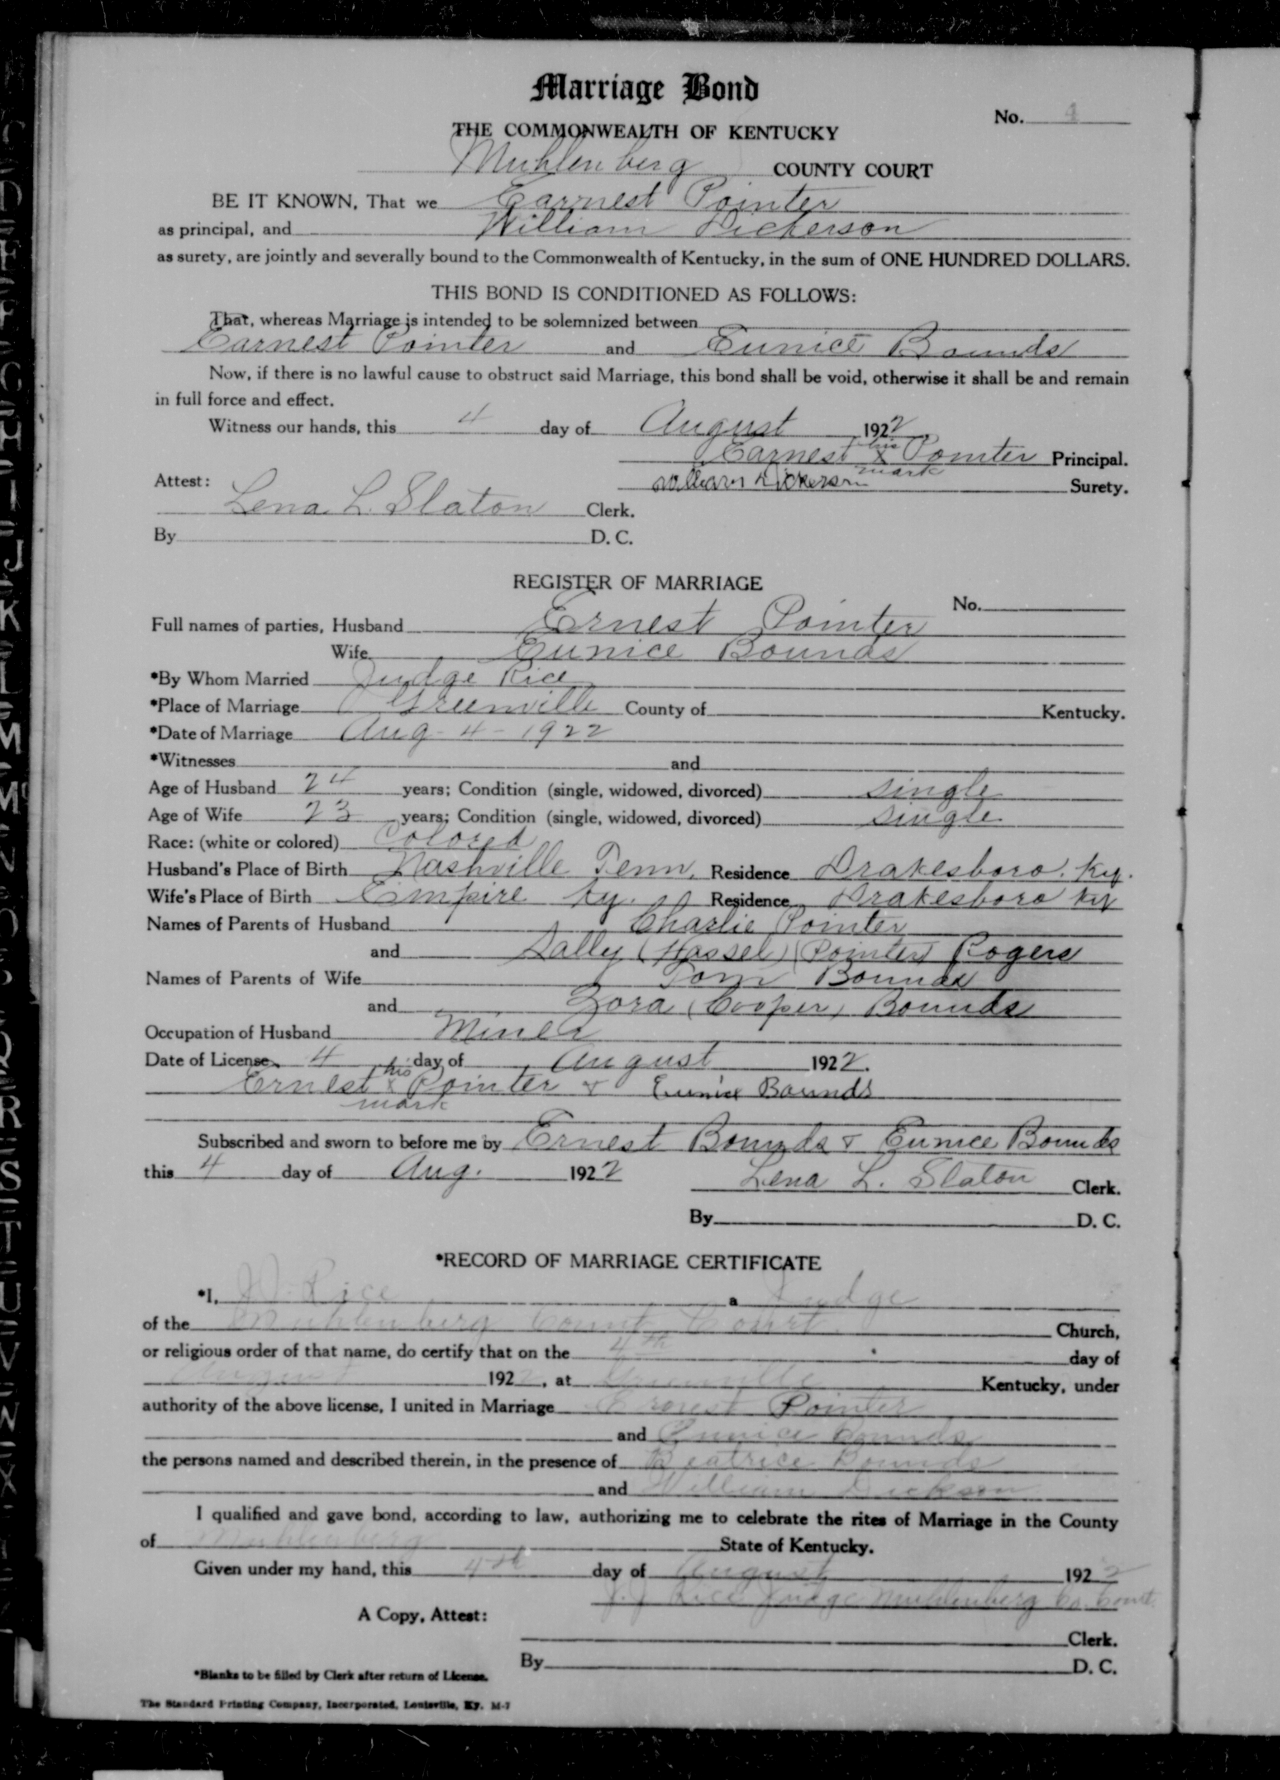 Marriage Bond
No. 4
THE COMMONWEALTH OF KENTUCKY
Muhlenberg COUNTY COURT
BE IT KNOWN, That we Earnest Pointer
as principal, and William Dickerson
as surety, are jointly and severally bound to the Commonwealth of Kentucky, in the sum of ONE HUNDRED DOLLARS.
THIS BOND IS CONDITIONED AS FOLLOWS:
That, whereas Marriage is intended to be solemnized between
Earnest Pointer and Eunice Bounds
Now, if there is no lawful cause to obstruct said Marriage, this bond shall be void, otherwise it shall be and remain
in full force and effect.
Witness our hands, this 4 day of August 1922
Earnest his x mark Pointer Principal.
Attest: William Dickerson Surety.
Lena L. Slaton Clerk.
By D. C.
REGISTER OF MARRIAGE
No.
Full names of parties, Husband Ernest Pointer
Wife Eunice Bounds
*By Whom Married Judge Rice
*Place of Marriage Greenville County of Kentucky.
*Date of Marriage Aug - 4 - 1922
*Witnesses and
Age of Husband 24 years; Condition (single, widowed, divorced) single
Age of Wife 23 years; Condition (single, widowed, divorced) single
Race: (white or colored) Colored
Husband's Place of Birth Nashville Tenn. Residence Drakesboro, Ky.
Wife's Place of Birth Eimpire Ky. Residence Drakesboro Ky
Names of Parents of Husband Charlie Pointer
and Sally (Hassel) (Pointer) Rogers
Names of Parents of Wife Tom Bounds
and Zora (Cooper) Bounds
Occupation of Husband Miner
Date of License 4 day of August 1922.
Ernest his x mark Pointer & Eunice Bounds
Subscribed and sworn to before me by Ernest Bounds & Eunice Bounds
this 4 day of Aug. 1922
Lena L. Slaton Clerk.
By D. C.
*RECORD OF MARRIAGE CERTIFICATE
*I, Rice a Judge
of the Muhlenberg County Court Church,
or religious order of that name, do certify that on the 4th day of
August 1922, at Greenville Kentucky, under
authority of the above license, I united in Marriage Ernest Pointer
and Eunice Bounds
the persons named and described therein, in the presence of Beatrice Bounds
and William Dickson
I qualified and gave bond, according to law, authorizing me to celebrate the rites of Marriage in the County
of Muhlenberg State of Kentucky.
Given under my hand, this 4th day of August 1922
J. J. Rice Judge Muhlenberg Co. Court.
A Copy, Attest:
Clerk.
By D. C.
*Blanks to be filled by Clerk after return of License.
The Standard Printing Company, Incorporated, Louisville, Ky. M-7